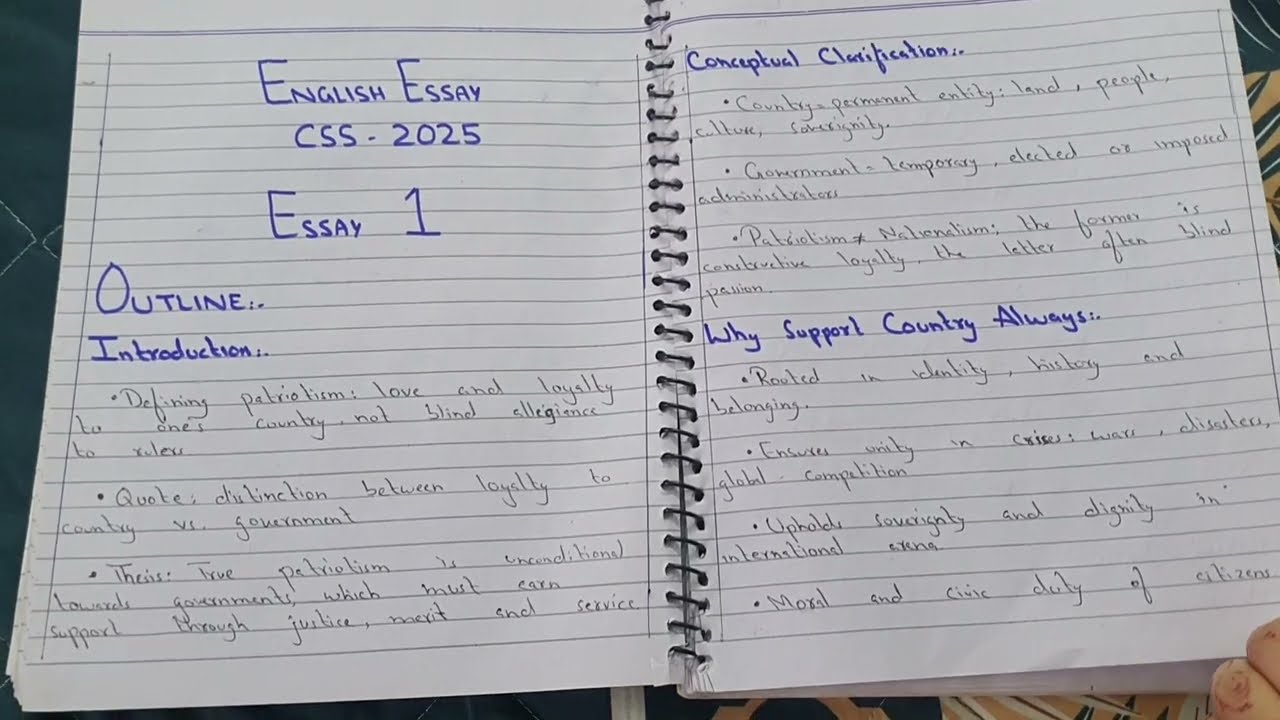 ENGLISH ESSAY
CSS - 2025
ESSAY 1
OUTLINE:.
Introduction:.
• Defining patriotism: love and loyalty
to one's country, not blind allegience
to rulers
• Quote: distinction between loyalty to
country vs. government
• Theis: True patriotism is unconditional
towards governments, which must earn
support through justice, merit and service
Conceptual Clarification:.
• Country = permanent entity: land, people,
culture, soverignity.
• Government = temporary, elected or imposed
administrators
• Patriotism ≠ Nationalism: the former is
constructive loyalty, the letter often blind
passion.
Why Support Country Always:.
• Rooted in identity, history and
belonging.
• Ensures unity in crises: wars, disasters,
global competition
• Upholds soverignty and dignity in
international arena
• Moral and civic duty of citizens